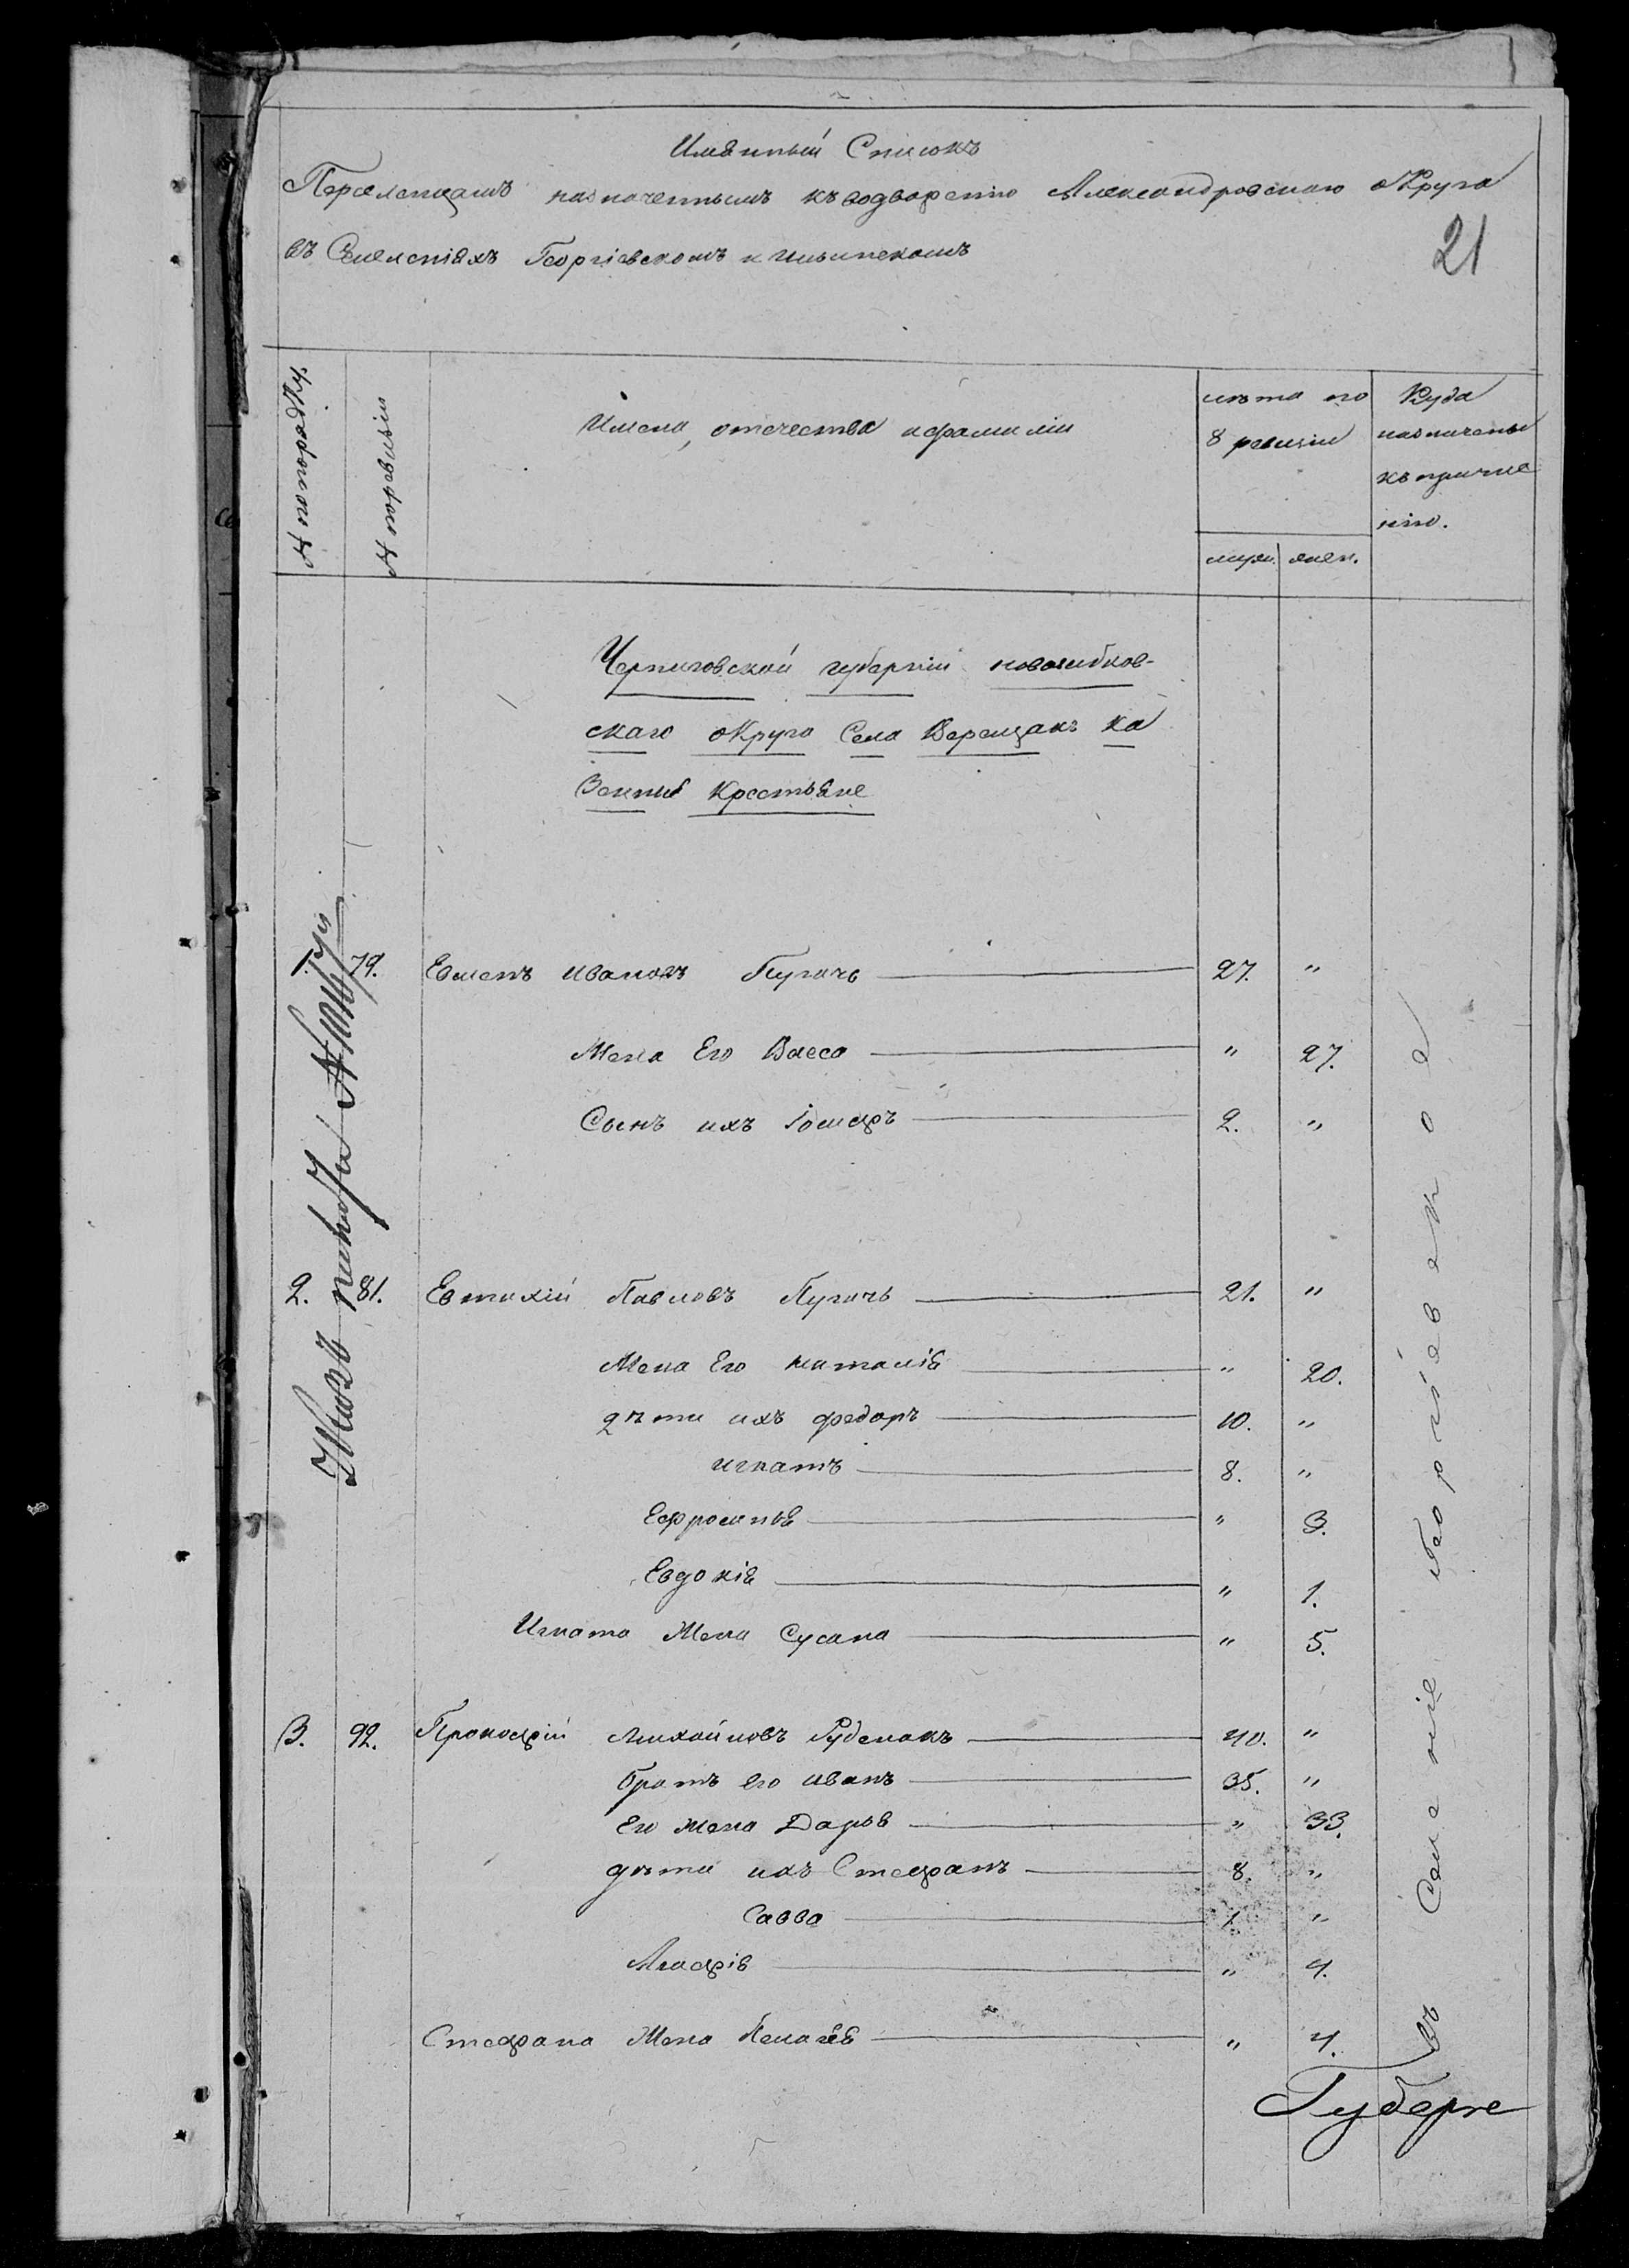 Имянный Списокъ
Переселенцамъ назначеннымъ къ водворенію Александровскаго округа
въ Селеніяхъ Георгіевскомъ и ильинскомъ
21
№ попорядку
№ поревизіи
Имена, отечества ифамиліи
лѣта по
8 ревизіи
муж. жен.
Куда
назначены
къ причис
лѣнію.
Черниговской губерніи новозибков-
скаго округа Села Верещакъ ка
Зенные Крестьяне
1. 79. Евменъ Ивановъ Пугачь 27. "
Жена Его Васса " 27.
Сынъ ихъ Іосифъ 2. "
2. 81. Евтихій Павловъ Пугачь 21. "
Жена Его наталія " 20.
дѣти ихъ федоръ 10. "
игнатъ 8. "
Ефросинья " 3.
Евдокія " 1.
Игната Жена Сусана " 5.
3. 92. Прокофій Михайловъ Рубенокъ 40. "
братъ его иванъ 35. "
Его жена Дарья " 33.
дѣти ихъ Стефанъ 8. "
Савва 1 "
Агафія " 4.
Стефана Жена Пелагѣя " 4.
въ Селеніе Георгіевское
Губерне